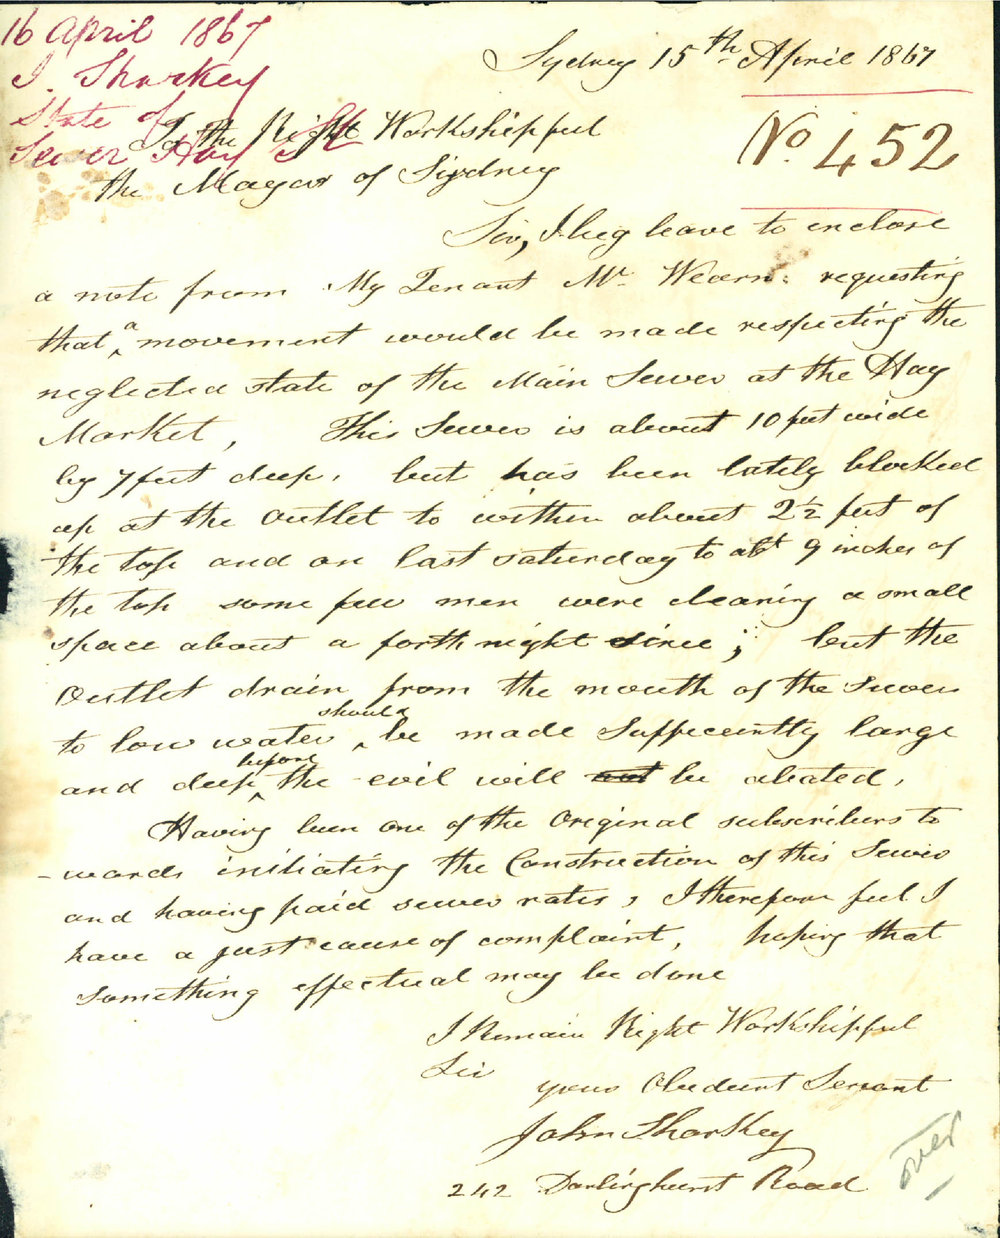 16 April 1867
J. Sharkey
State of
Sewer Hay St
Sydney 15th April 1867
No. 452
To the Right Workshipful
the Mayor of Sydney
Sir, I beg leave to enclose
a note from My Tenant Mr Wearn requesting
that a movement would be made respecting the
neglected state of the Main Sewer at the Hay
Market, This Sewer is about 10 feet wide
by 7 feet deep, but has been lately blocked
up at the outlet to within about 2½ feet of
the top and on last saturday to abt 9 inches of
the top some few men were clearing a small
space about a forthnight since; but the
Outlet drain from the mouth of the sewer
to low water should be made sufficiently large
and deep before the evil will not be abated,
Having been one of the Original subscribers to
-wards initiating the Construction of this Sewer
and having paid sewer rates, I therefore feel I
have a just cause of complaint, hoping that
something effectual may be done
I Remain Right Workshipful
Sir
your Obedient Servant
John Sharkey
242 Darlinghurst Road
over